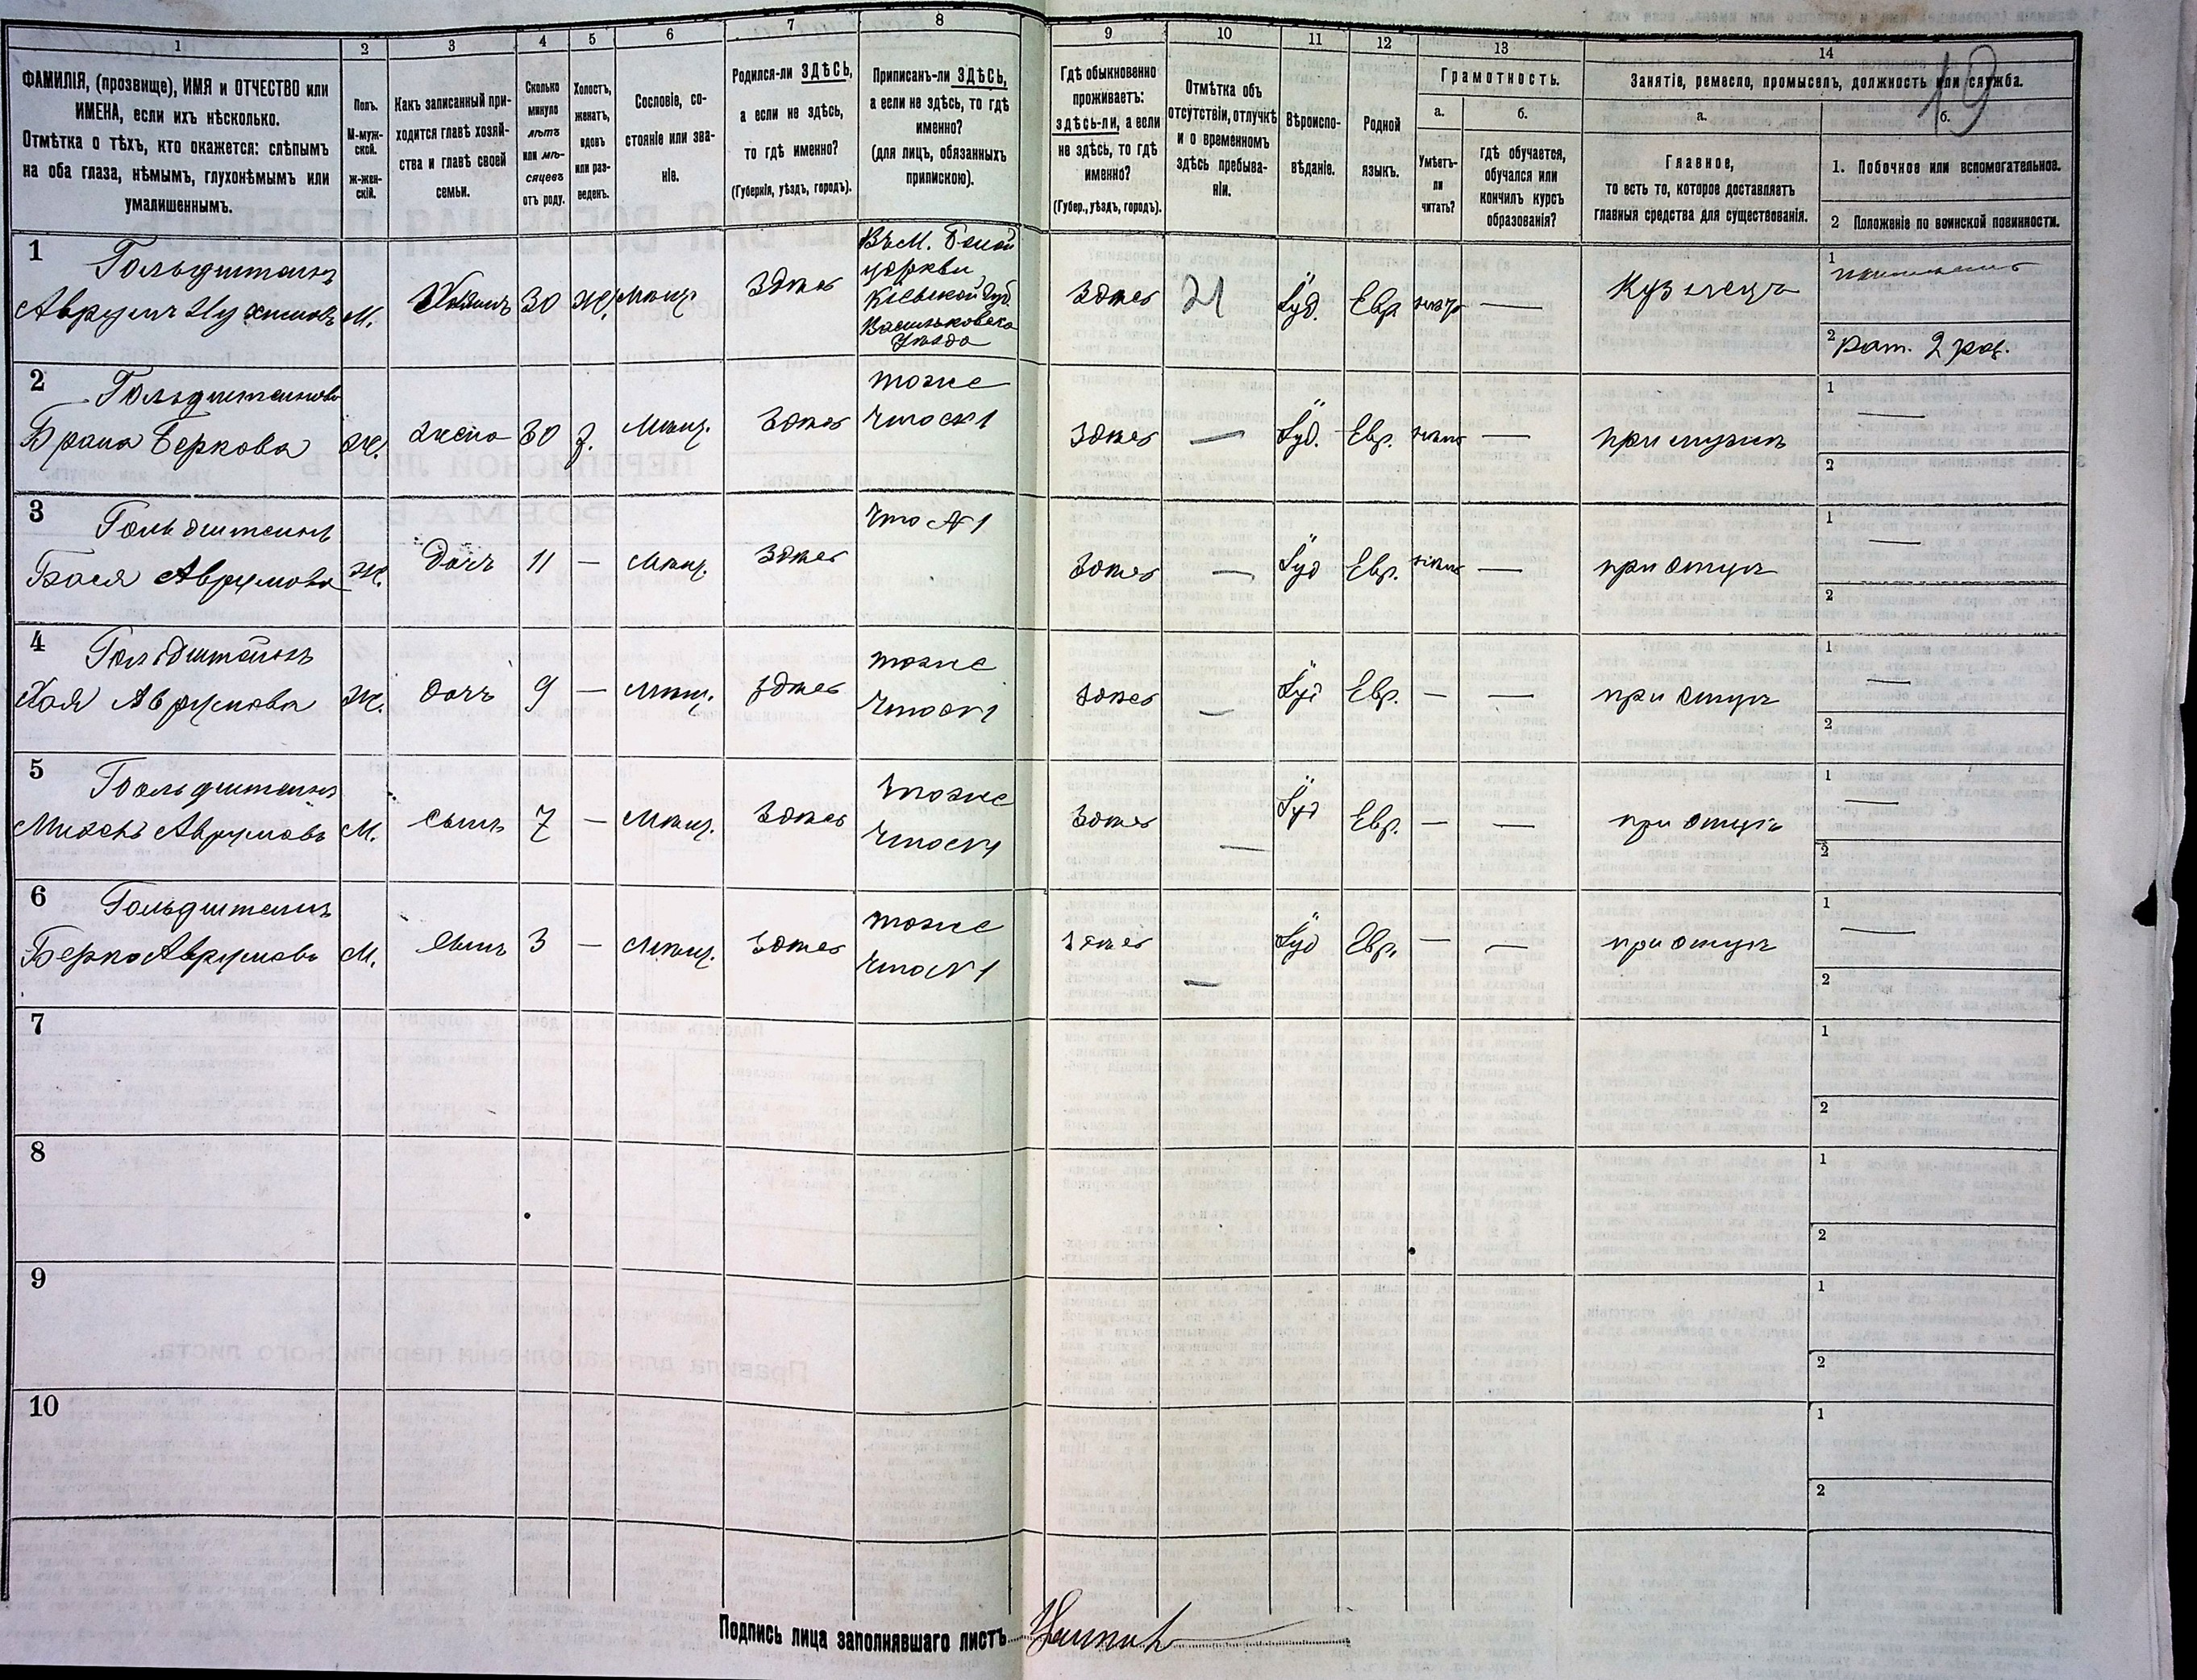 1
2
3
4
5
6
7
8
9
10
11
12
13
14
19
ФАМИЛІЯ, (прозвище), ИМЯ и ОТЧЕСТВО или
ИМЕНА, если ихъ нѣсколько.
Отмѣтка о тѣхъ, кто окажется: слѣпымъ
на оба глаза, нѣмымъ, глухонѣмымъ или
умалишеннымъ.
Полъ.
М-муж-
ской.
Ж-жен-
скій.
Какъ записанный при-
ходится главѣ хозяй-
ства и главѣ своей
семьи.
Сколько
минуло
лѣтъ
или мѣ-
сяцевъ
отъ роду.
Холостъ,
женатъ,
вдовъ
или раз-
веденъ.
Сословіе, со-
стояніе или зва-
ніе.
Родился-ли ЗДѢСЬ,
а если не здѣсь,
то гдѣ именно?
(Губернія, уѣздъ, городъ).
Приписанъ-ли ЗДѢСЬ,
а если не здѣсь, то гдѣ
именно?
(для лицъ, обязанныхъ
припискою).
Гдѣ обыкновенно
проживаетъ:
здѣсь-ли, а если
не здѣсь, то гдѣ
именно?
(Губер., уѣздъ, городъ).
Отмѣтка объ
отсутствіи, отлучкѣ
и о временномъ
здѣсь пребыва-
ніи.
Вѣроиспо-
вѣданіе.
Родной
языкъ.
Грамотность.
а.
Умѣетъ-
ли
читать?
б.
гдѣ обучается,
обучался или
кончилъ курсъ
образованія?
Занятіе, ремесло, промыселъ, должность или служба.
а.
Главное,
то есть то, которое доставляетъ
главныя средства для существованія.
б.
1. Побочное или вспомогательное.
2 Положеніе по воинской повинности.
1 Гольдштейнъ
Аврумъ Нухимовъ М. Хозяинъ 30 Ж. Мѣщ. Здѣсь
Въ М. Белой
церкви
Кіевской Губ.
Васильковска
Уѣзда
Здѣсь 21 Іуд. Евр. Кузнецъ
1
2 Рат. 2 раз.
2 Гольдштейнова
Брана Беркова Ж. жена 30 З. Мѣщ. Здѣсь
тоже
Что и №1
Здѣсь — Іуд. Евр. — при мужѣ
1 —
2
3 Гольдштейнъ
Бася Аврумова Ж. Дочь 11 — Мѣщ. Здѣсь
Что №1
Здѣсь — Іуд Евр. — при отцѣ
1 —
2
4 Гольдштейнъ
Хая Аврумова Ж. дочь 9 — Мѣщ. Здѣсь
тоже
Что №1
Здѣсь — Іуд Евр. — — при отцѣ
1 —
2
5 Гольдштейнъ
Михель Аврумовъ М. сынъ 7 — Мѣщ. Здѣсь
тоже
Что №1
Здѣсь — Іуд Евр. — — при отцѣ
1 —
2
6 Гольдштейнъ
Берко Аврумовъ М. сынъ 3 — Мѣщ. Здѣсь
тоже
Что №1
Здѣсь — Іуд Евр. — — при отцѣ
1 —
2
7
1
2
8
1
2
9
1
2
10
1
2
Подпись лица заполнявшаго листъ